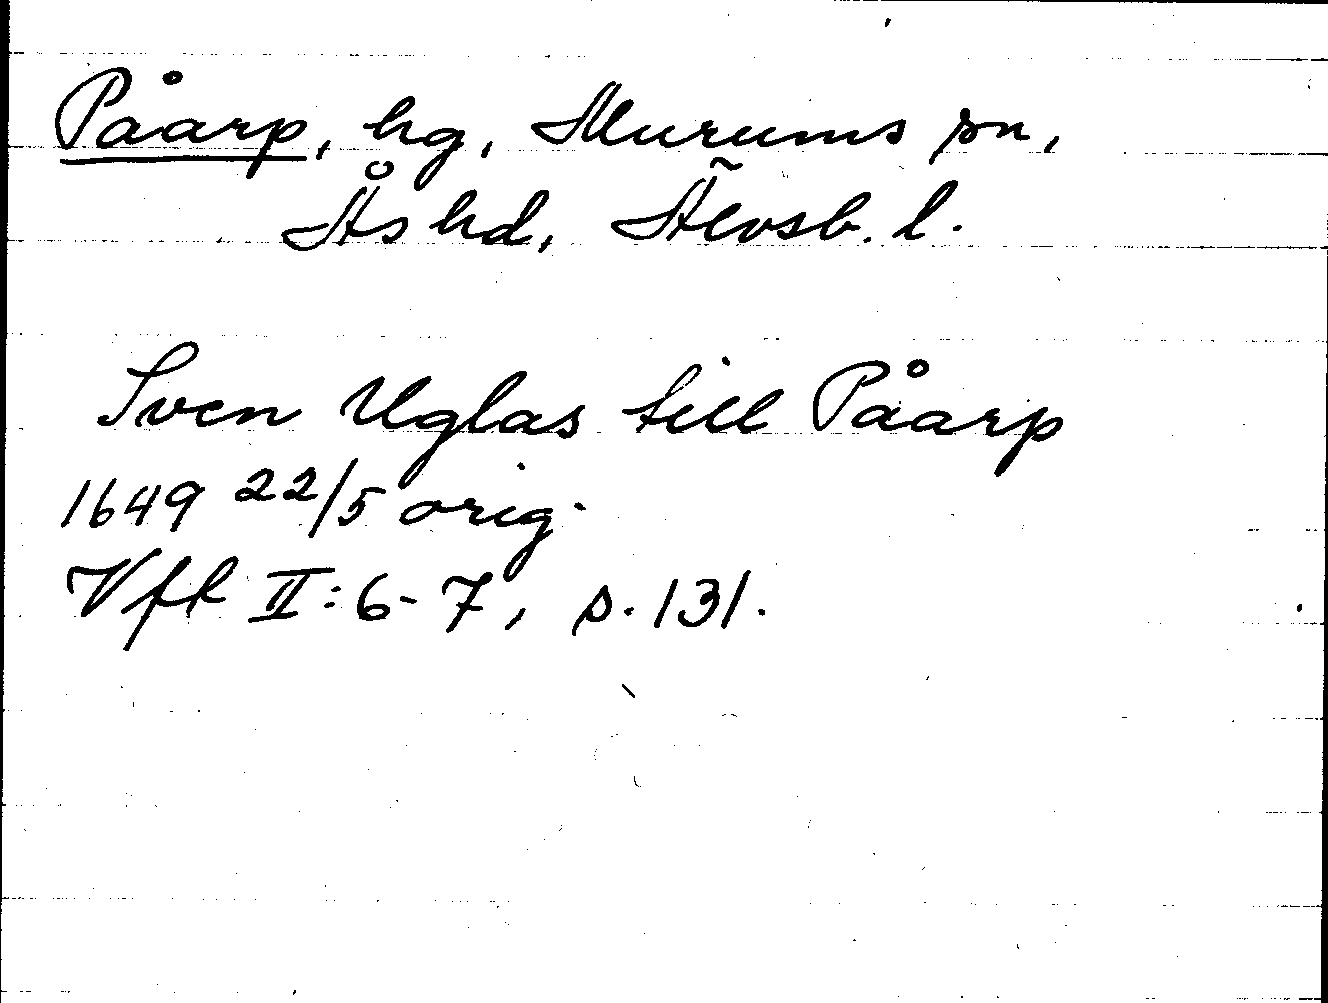 Påarp, hg, Murums sn,
Ås hd, Älvsb. l.
Sven Uglas till Påarp
1649 22/5 orig.
Vfl II: 6-7, s. 131.